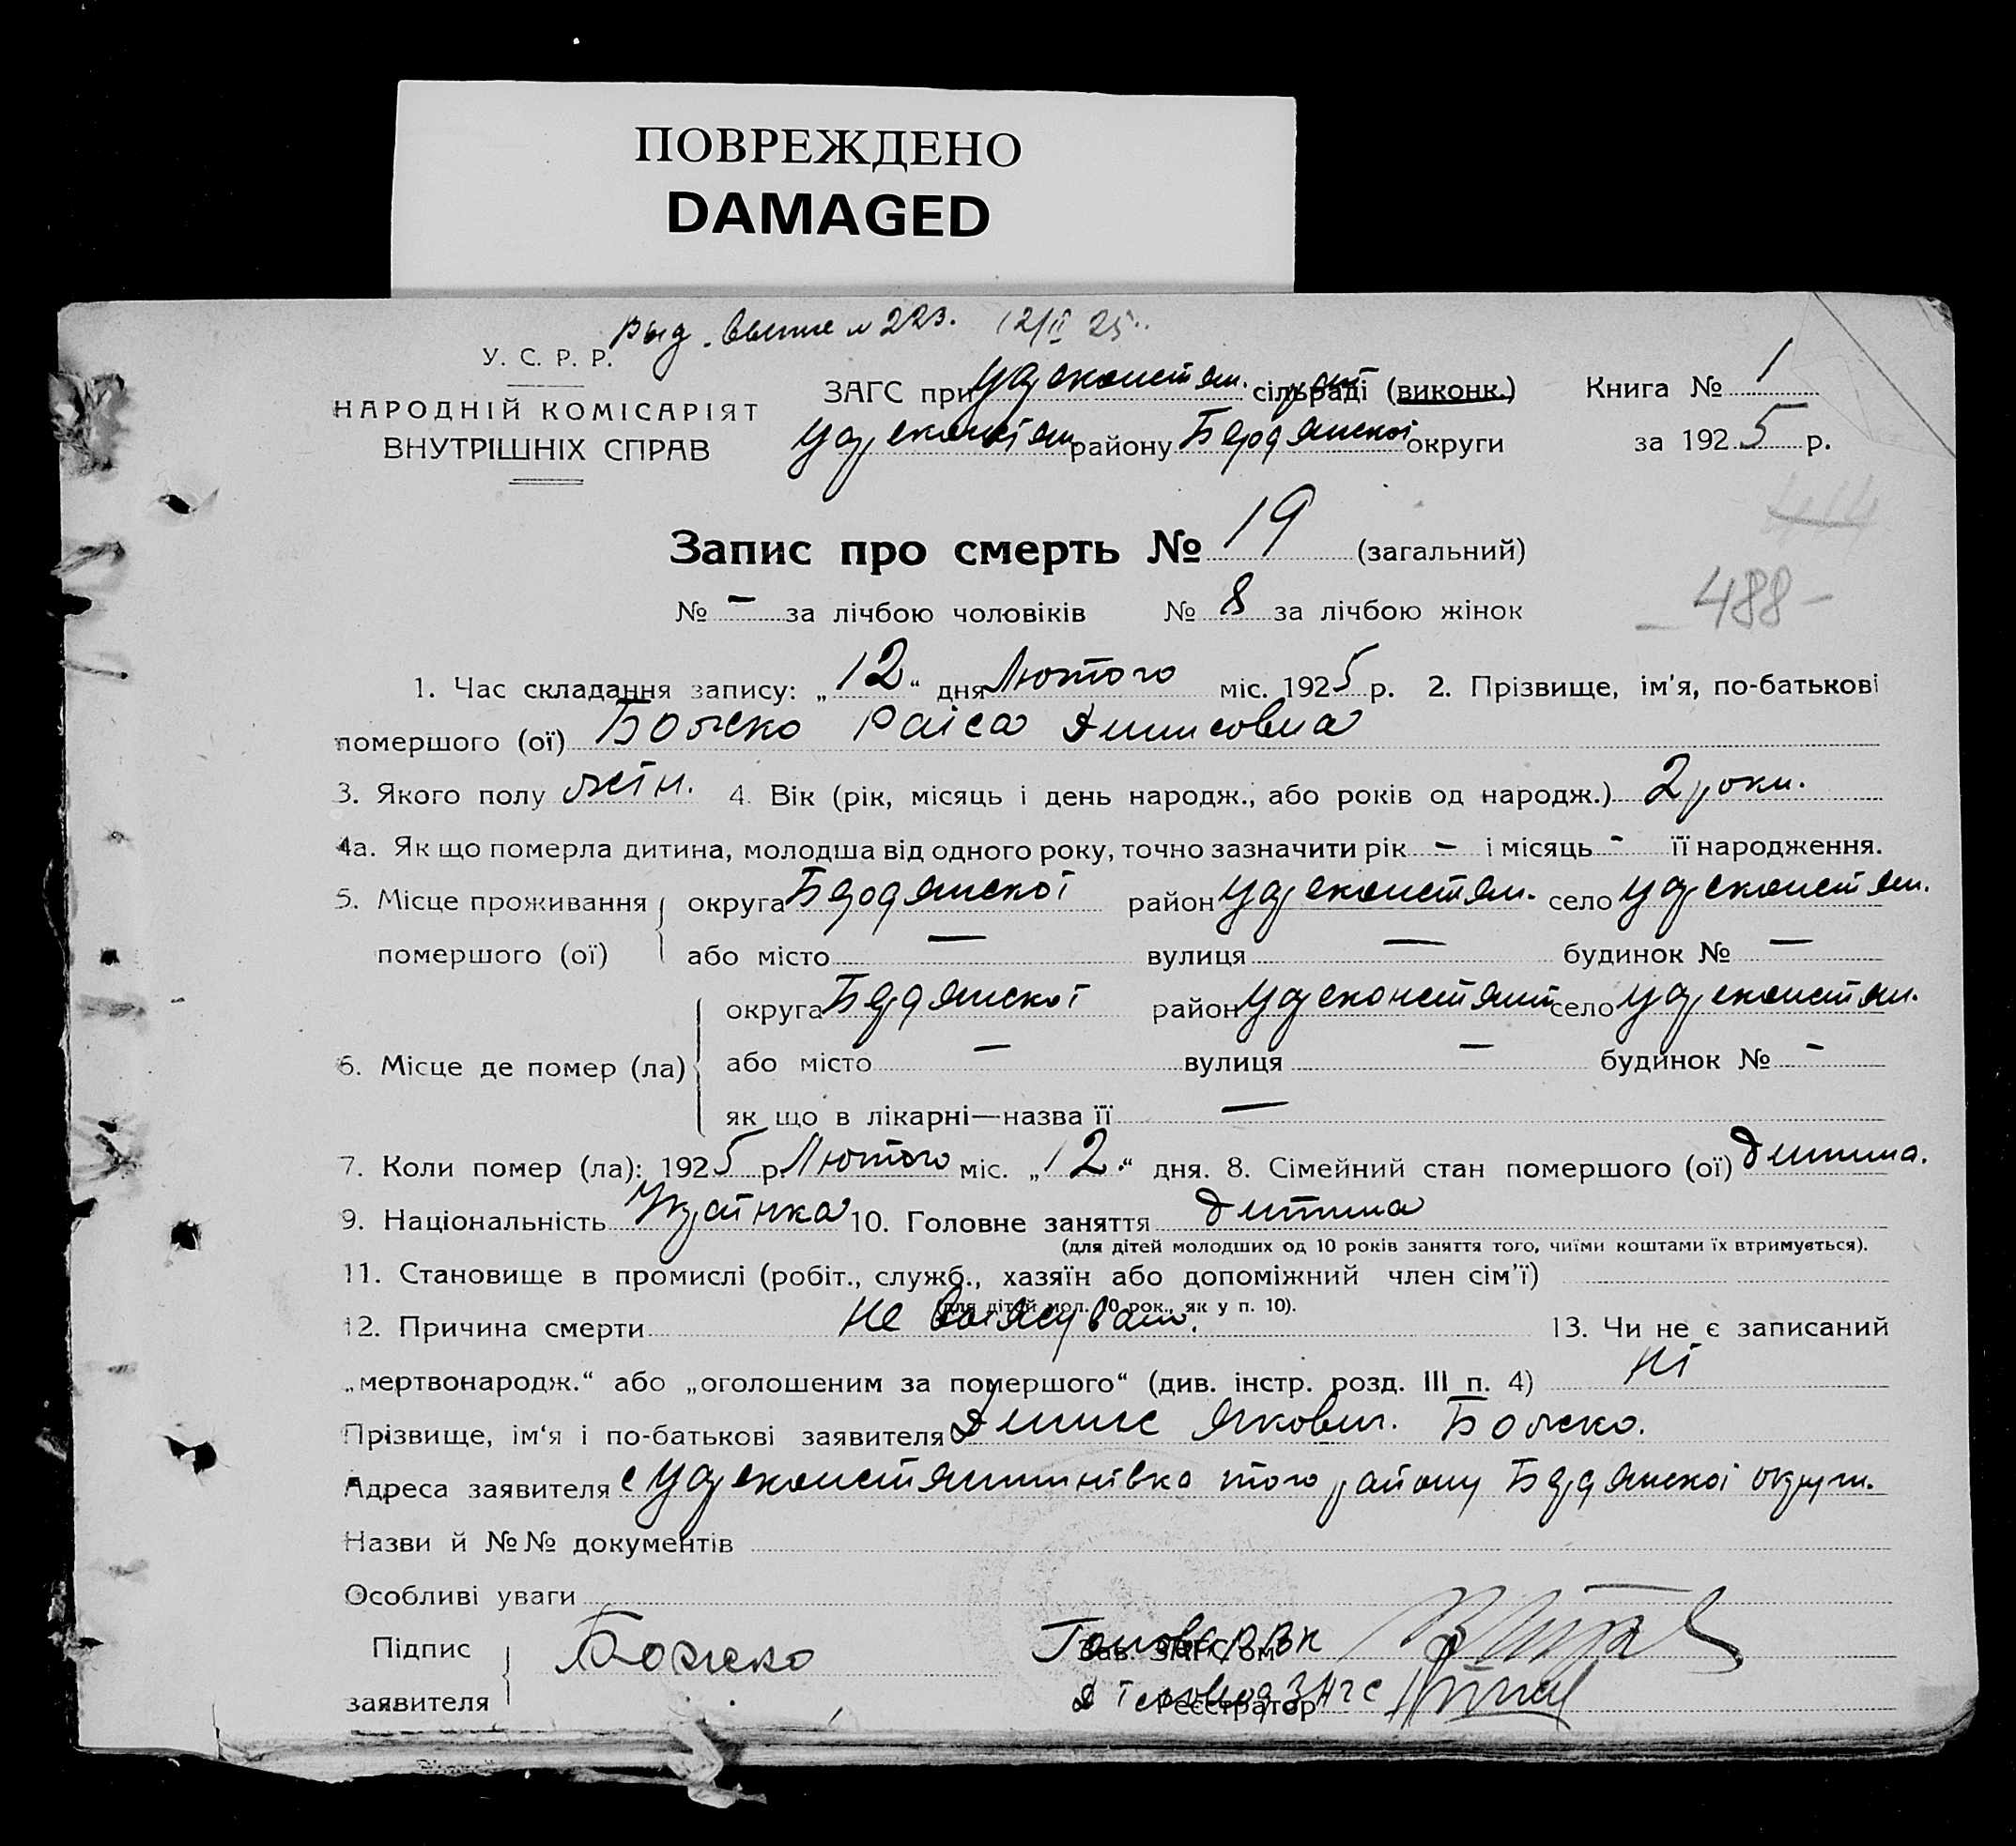 ПОВРЕЖДЕНО
DAMAGED
выд. выпис № 223. 12/II 25.
У. С. Р. Р.
НАРОДНІЙ КОМІСАРІЯТ
ВНУТРІШНІХ СПРАВ
ЗАГС при Царекостян. сільраді (виконк.)
Царекостян району Бердянской округи
Книга № 1
за 1925 р.
Запис про смерть № 19 (загальний)
№ – за лічбою чоловіків № 8 за лічбою жінок
488-
1. Час складання запису: „12“ дня Лютого міс. 1925 р. 2. Прізвище, ім'я, по-батькові
помершого (ої) Божко Раіса Дишсовна
3. Якого полу жін. 4. Вік (рік, місяць і день народж., або років од народж.) 2 роки.
4а. Як що померла дитина, молодша від одного року, точно зазначити рік – і місяць - її народження.
5. Місце проживання помершого (ої) округа Бердянскоі район Царекостян. село Царекостян.
або місто — вулиця — будинок № —
6. Місце де помер (ла) округа Бердянскоі район Царекостянт село Царекостян.
або місто — вулиця — будинок № -
як що в лікарні—назва її —
7. Коли помер (ла): 1925 р. Лютого міс. „12.“ дня. 8. Сімейний стан помершого (ої) дитина.
9. Національність Украінка 10. Головне заняття дитина
(для дітей молодших од 10 років заняття того, чиїми коштами їх втримується).
11. Становище в промислі (робіт., служб., хазяїн або допоміжний член сім'ї)
(для дітей мол. 10 рок., як у п. 10).
12. Причина смерти не 13. Чи не є записаний
„мертвонародж.“ або „оголошеним за помершого“ (див. інстр. розд. III п. 4) ні
Прізвище, ім'я і по-батькові заявителя Денис Якович. Божко.
Адреса заявителя с Царекостянтинівка того району Бердянскоі округи.
Назви й №№ документів
Особливі уваги
Підпис заявителя Божко
Голова РВК Зав. ЗАГС'ом
Діловод ЗАГС Реєстратор